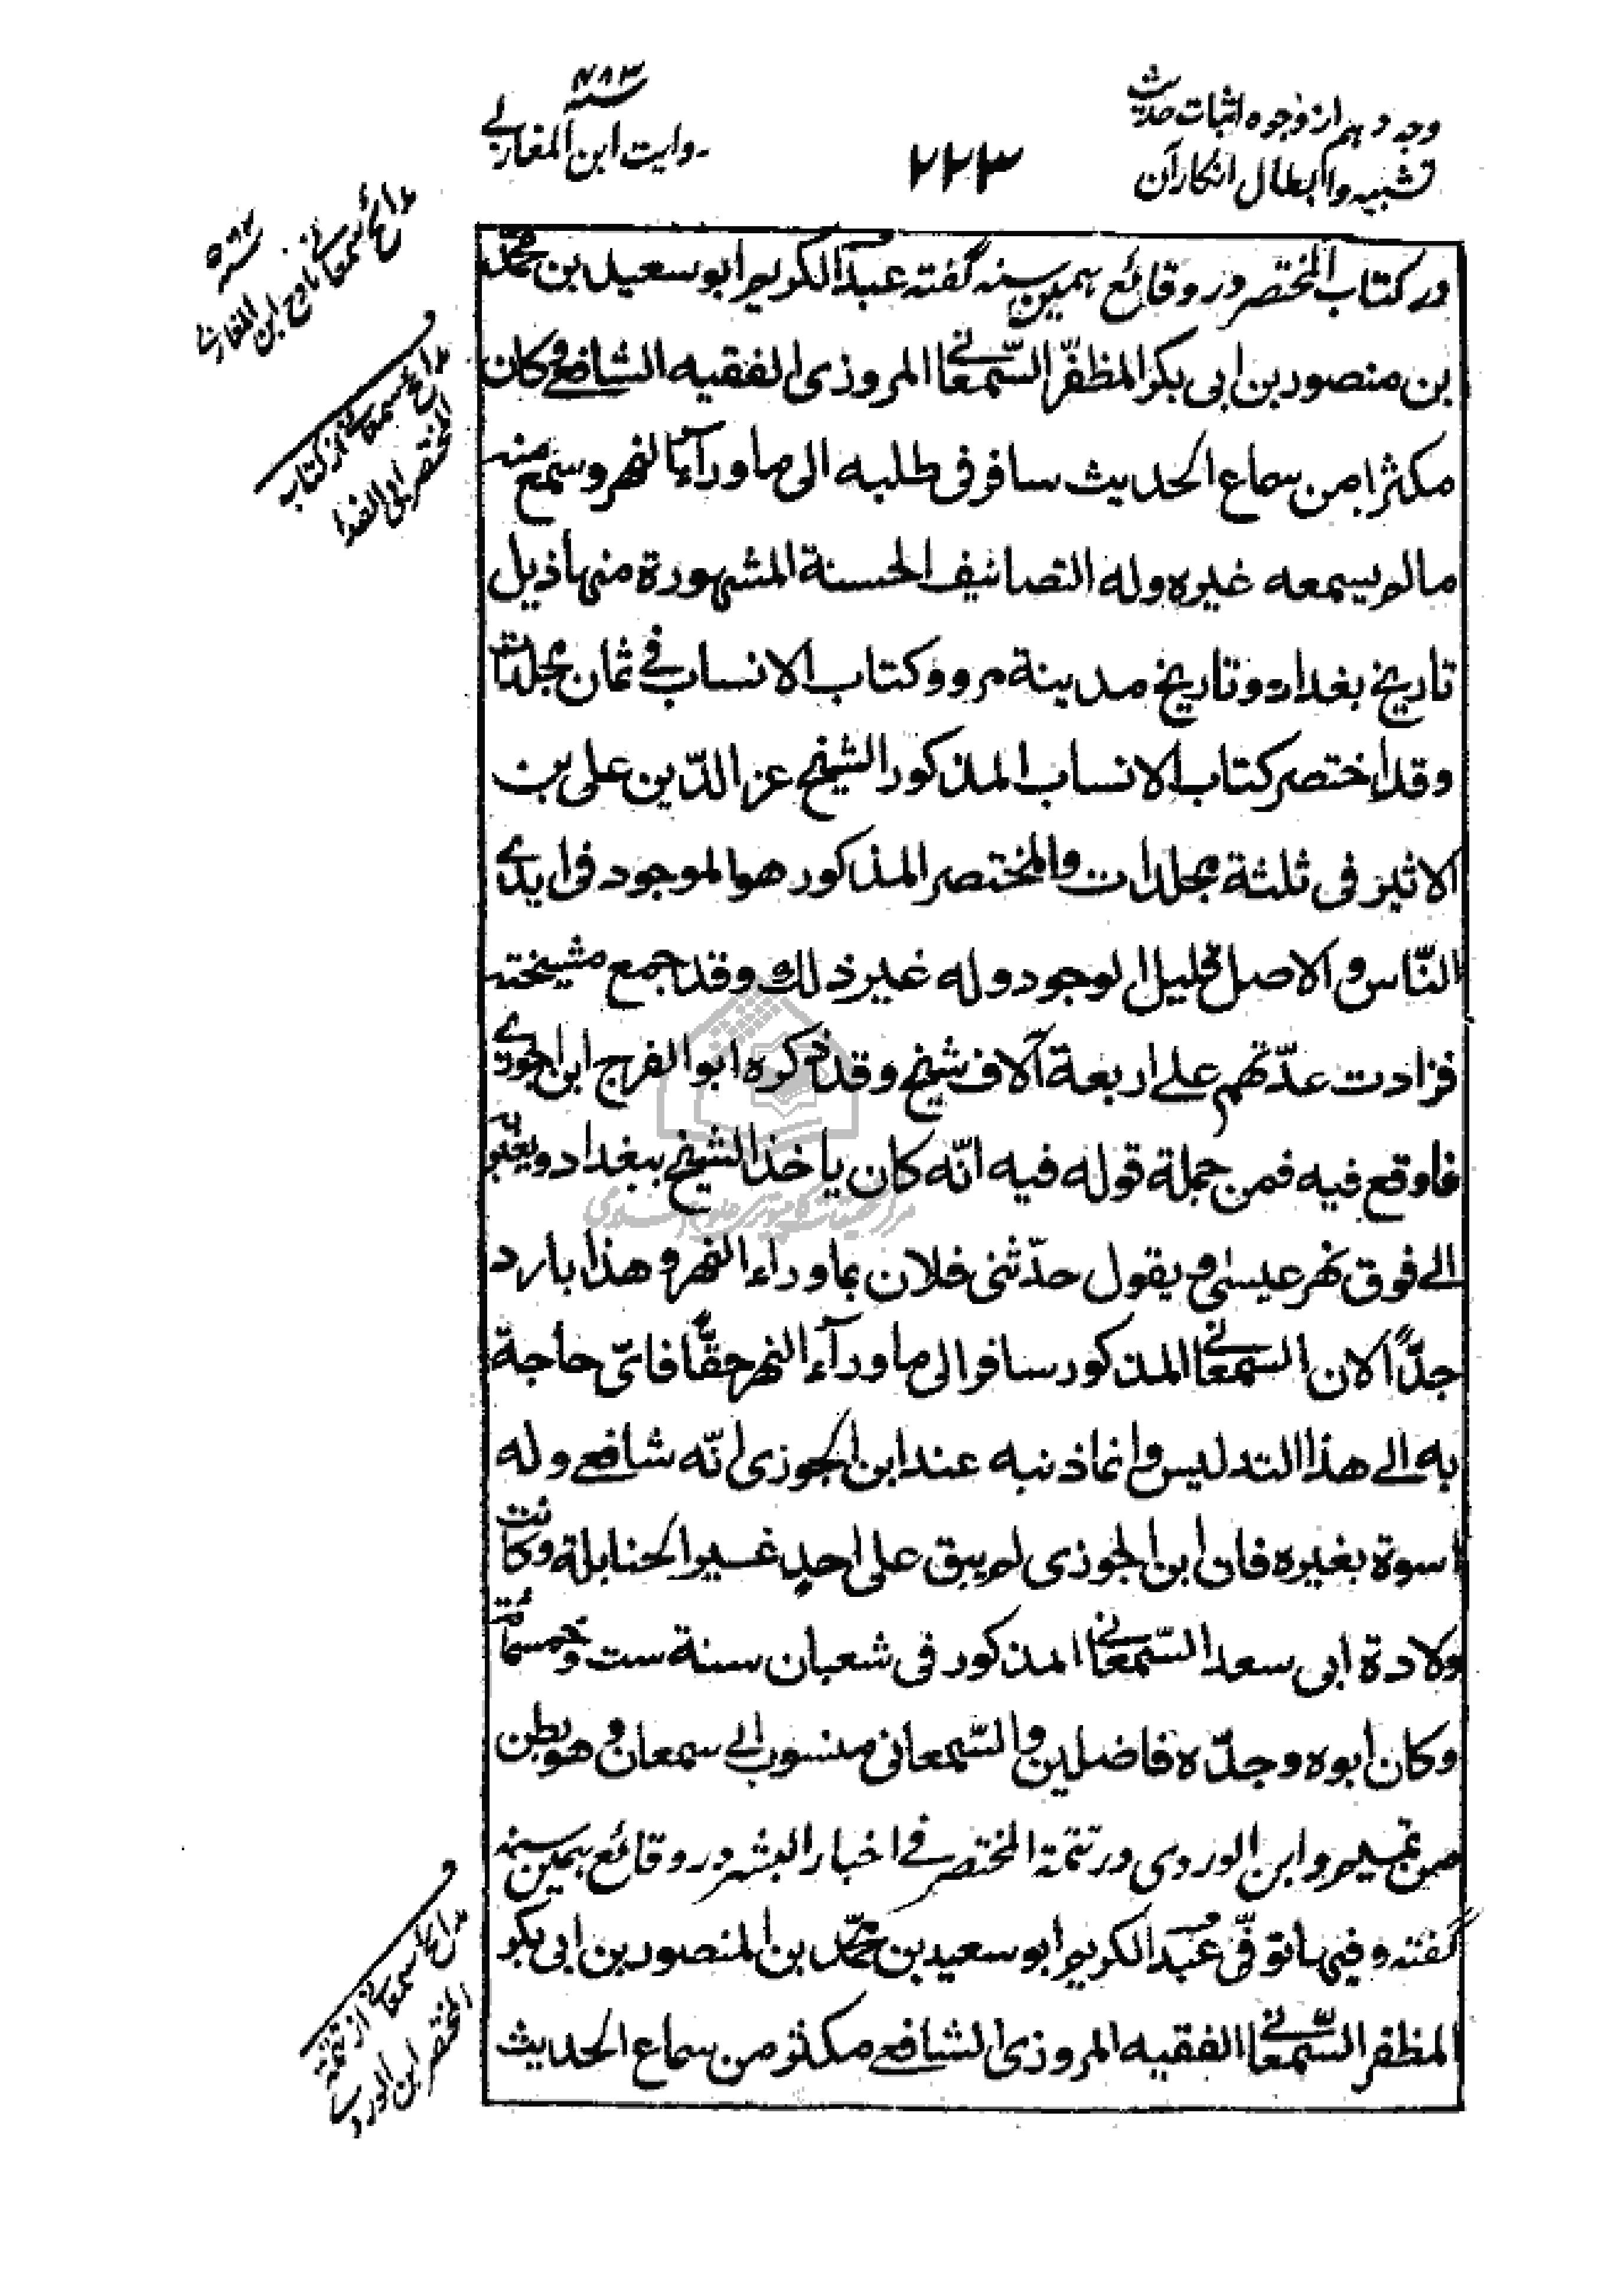 وجه دهم از وجوه اثبات حدیث
تشبیه و ابطال انکار آن
۲۲۳
سنه ۴۸۳
روایت ابن المغازلی
در کتاب المختصر در وقائع همین سنه گفته عبد الکریم ابو سعید بن محمّد
بن منصور بن ابی بکر المظفّر السّمعانی المروزی الفقیه الشافعی و کان
مکثرا من سماع الحدیث سافر فی طلبه الی ماورآء النهر و سمع منه
مالم یسمعه غیره و له التصانیف الحسنة المشهورة منها ذیل
تاریخ بغداد و تاریخ مدینة مرو و کتاب الانساب فی ثمان مجلدات
و قد اختصر کتاب الانساب المذکور الشیخ عز الدّین علی بن
الاثیر فی ثلثة مجلدات و المختصر المذکور هو الموجود فی ایدی
النّاس و الاصل قلیل الوجود و له غیر ذلک و قد جمع مشیخته
فزادت عدّتهم علی اربعة آلاف شیخ و قد ذکره ابو الفرج ابن الجوزی
فاوقع فیه فمن جملة قوله فیه انّه کان یاخذ الشیخ ببغداد و یعبر به
الی فوق نهر عیسی و یقول حدّثنی فلان بماوراء النهر و هذا بارد
جدًّا لان السمعانی المذکور سافر الی ماورآء النهر حقًّا فایّ حاجة
به الی هذا التدلیس و انما ذنبه عند ابن الجوزی انّه شافعی و له
اسوة بغیره فان ابن الجوزی لم یبق علی احدٍ غیر الحنابلة و کانت
ولادة ابی سعد السّمعانی المذکور فی شعبان سنة ست و خمسمائة
و کان ابوه و جدّه فاضلین و السّمعانی منسوب الی سمعان و هو بطن
من تمیم و ابن الوردی در تتمة المختصر فی اخبار البشر در وقائع همین سنه
گفته و فیها توفّی عبد الکریم ابو سعید بن محمّد بن المنصور بن ابی بکر
المظفر السّمعانی الفقیه المروزی الشافعی مکثر من سماع الحدیث
مدائح سمعانی مادح ابن المغازلی
سنه ۵۶۲
و
مدائح سمعانی از کتاب
المختصر ابی الفدا
و
مدائح سمعانی از تتمة
المختصر ابن الوردی